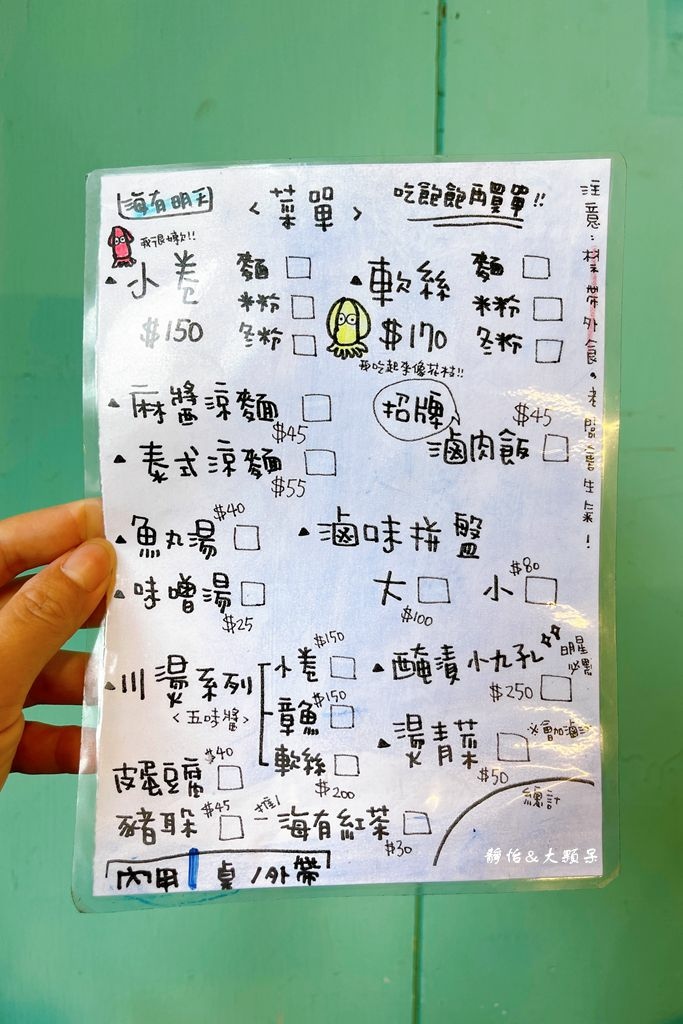 海有明天
<菜單>
吃飽飽再買單!!
注意:禁帶外食。老闆會生氣!
我很嫩!!
小卷
$150
麵
米粉
冬粉
軟絲
$170
麵
米粉
冬粉
我吃起來像花枝!!
麻醬涼麵
$45
泰式涼麵
$55
招牌
滷肉飯
$45
魚丸湯
$40
味噌湯
$25
滷味拼盤
大
$100
小
$80
川燙系列
<五味醬>
小卷
$150
章魚
$150
軟絲
$200
醃漬小丸孔
$250
明星
必點
燙青菜
$50
必會加滷汁
皮蛋豆腐
$40
豬耳朵
$45
推
海有紅茶
$30
總計
內用 桌/外帶
靜怡&大顆呆